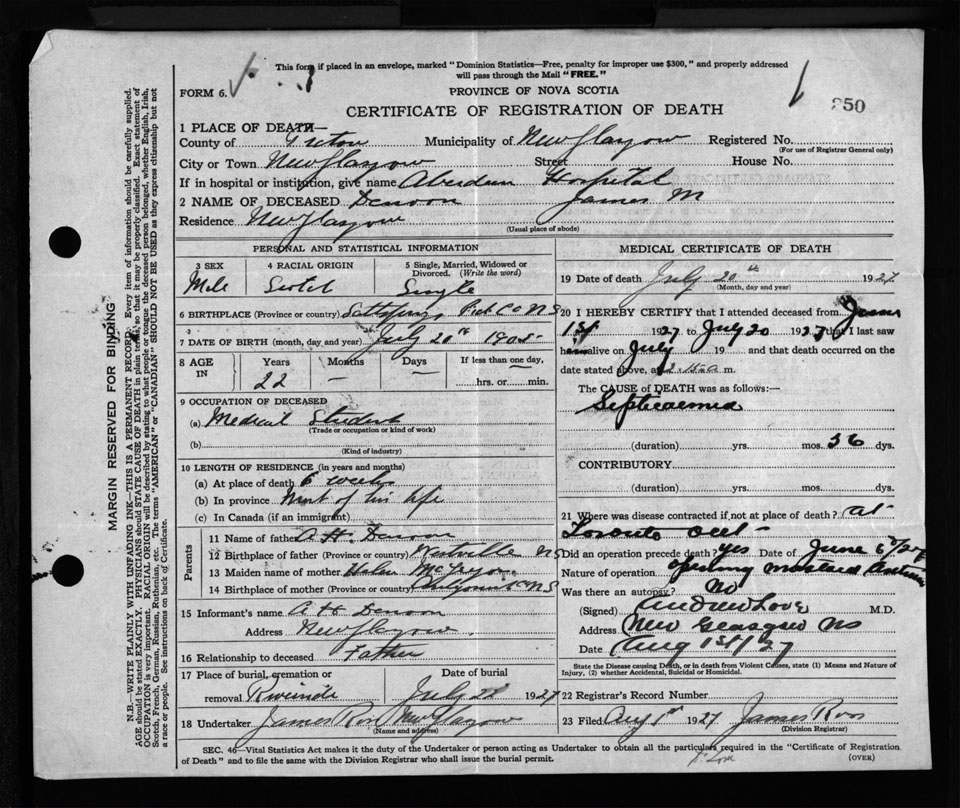 This form if placed in an envelope, marked "Dominion Statistics—Free, penalty for improper use $300," and properly addressed
will pass through the Mail "FREE."
FORM 6.
PROVINCE OF NOVA SCOTIA
350
CERTIFICATE OF REGISTRATION OF DEATH
1 PLACE OF DEATH—
County of Pictou Municipality of New Glasgow Registered No.
(For use of Registrar General only)
City or Town New Glasgow Street House No.
If in hospital or institution, give name Aberdeen Hospital
2 NAME OF DECEASED Denoon James M
Residence New Glasgow
(Usual place of abode)
PERSONAL AND STATISTICAL INFORMATION
3 SEX 4 RACIAL ORIGIN 5 Single, Married, Widowed or Divorced. (Write the word)
Male Scotch Single
6 BIRTHPLACE (Province or country) Pict Co N S
7 DATE OF BIRTH (month, day and year) July 20th 1905
8 AGE IN Years Months Days If less than one day,
22 — — hrs. or min.
9 OCCUPATION OF DECEASED
(a) Medical Student
(Trade or occupation or kind of work)
(b)
(Kind of industry)
10 LENGTH OF RESIDENCE (in years and months)
(a) At place of death 6 weeks
(b) In province Most of his life
(c) In Canada (if an immigrant)
Parents
11 Name of father A. H. Denoon
12 Birthplace of father (Province or country) Westville NS
13 Maiden name of mother Helen
14 Birthplace of mother (Province or country) N S
15 Informant's name A H Denoon
Address New Glasgow
16 Relationship to deceased Father
17 Place of burial, cremation or removal Riverside Date of burial July 22 1927
18 Undertaker James Ross New Glasgow
(Name and address)
MEDICAL CERTIFICATE OF DEATH
19 Date of death July 20th 1927
(Month, day and year)
20 I HEREBY CERTIFY that I attended deceased from June
1st 1927 to July 20 1927 that I last saw
alive on July 19 and that death occurred on the
date stated above, at m.
The CAUSE of DEATH was as follows:—
Septicaemia
(duration) yrs. mos. 36 dys.
CONTRIBUTORY
(duration) yrs. mos. dys.
21 Where was disease contracted if not at place of death? at
Toronto Ont
Did an operation precede death? yes Date of June 6th/27
Nature of operation opening mastoid Antrum
Was there an autopsy? No
(Signed) Andrew Love M.D.
Address New Glasgow NS
Date Aug 1st/27
State the Disease causing Death, or in death from Violent Causes, state (1) Means and Nature of
Injury, (2) whether Accidental, Suicidal or Homicidal.
22 Registrar's Record Number
23 Filed Aug 1st 1927 James Ross
(Division Registrar)
SEC. 46—Vital Statistics Act makes it the duty of the Undertaker or person acting as Undertaker to obtain all the particulars required in the "Certificate of Registration
of Death" and to file the same with the Division Registrar who shall issue the burial permit.
(OVER)
MARGIN RESERVED FOR BINDING
N.B.—WRITE PLAINLY WITH UNFADING INK—THIS IS A PERMANENT RECORD. Every item of information should be carefully supplied.
AGE should be stated EXACTLY. PHYSICIANS should STATE CAUSE OF DEATH in plain terms, so that it may be properly classified. Exact statement of
OCCUPATION is very important. RACIAL ORIGIN will be described by stating to what people or tongue the deceased person belonged, whether English, Irish,
Scotch, French, German, Russian, Ruthenian, etc. The terms "AMERICAN" or "CANADIAN" SHOULD NOT BE USED as they express citizenship but not
a race or people. See instructions on back of Certificate.